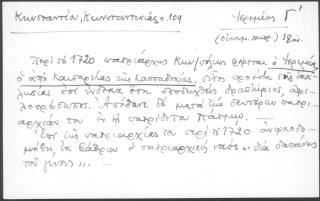 Κωνσταντία, Κωνσταντινιάς σ. 109
Ἱερεμίας Γ΄
(οἰκουμ. πατρ.) 18 αἰ.
Περί τό 1720 πατριάρχης Κων/πόλεως φέρεται ὁ Ἱερεμίας
ὁ ἀπό Καισαρείας τῆς Καππαδοκίας. οὗτος προέστη τῆς ἐκκλη-
σίας ἐπί ἕνδεκα ἔτη ἀποδειχθείς δραστήριος, ἀφι-
λοπρόσωπος. Ἀπέθανε δέ μετά τήν δευτέραν πατρι-
αρχίαν του ἐν τῇ πατρίδι του Πάτμῳ.
Ἐπί τῆς πατριαρχίας του περί τό 1720 ἀνῳκοδο-
μήθη ἐκ βάθρων ὁ πατριαρχικός ναός "διά δαπάνης
τοῦ γένους".